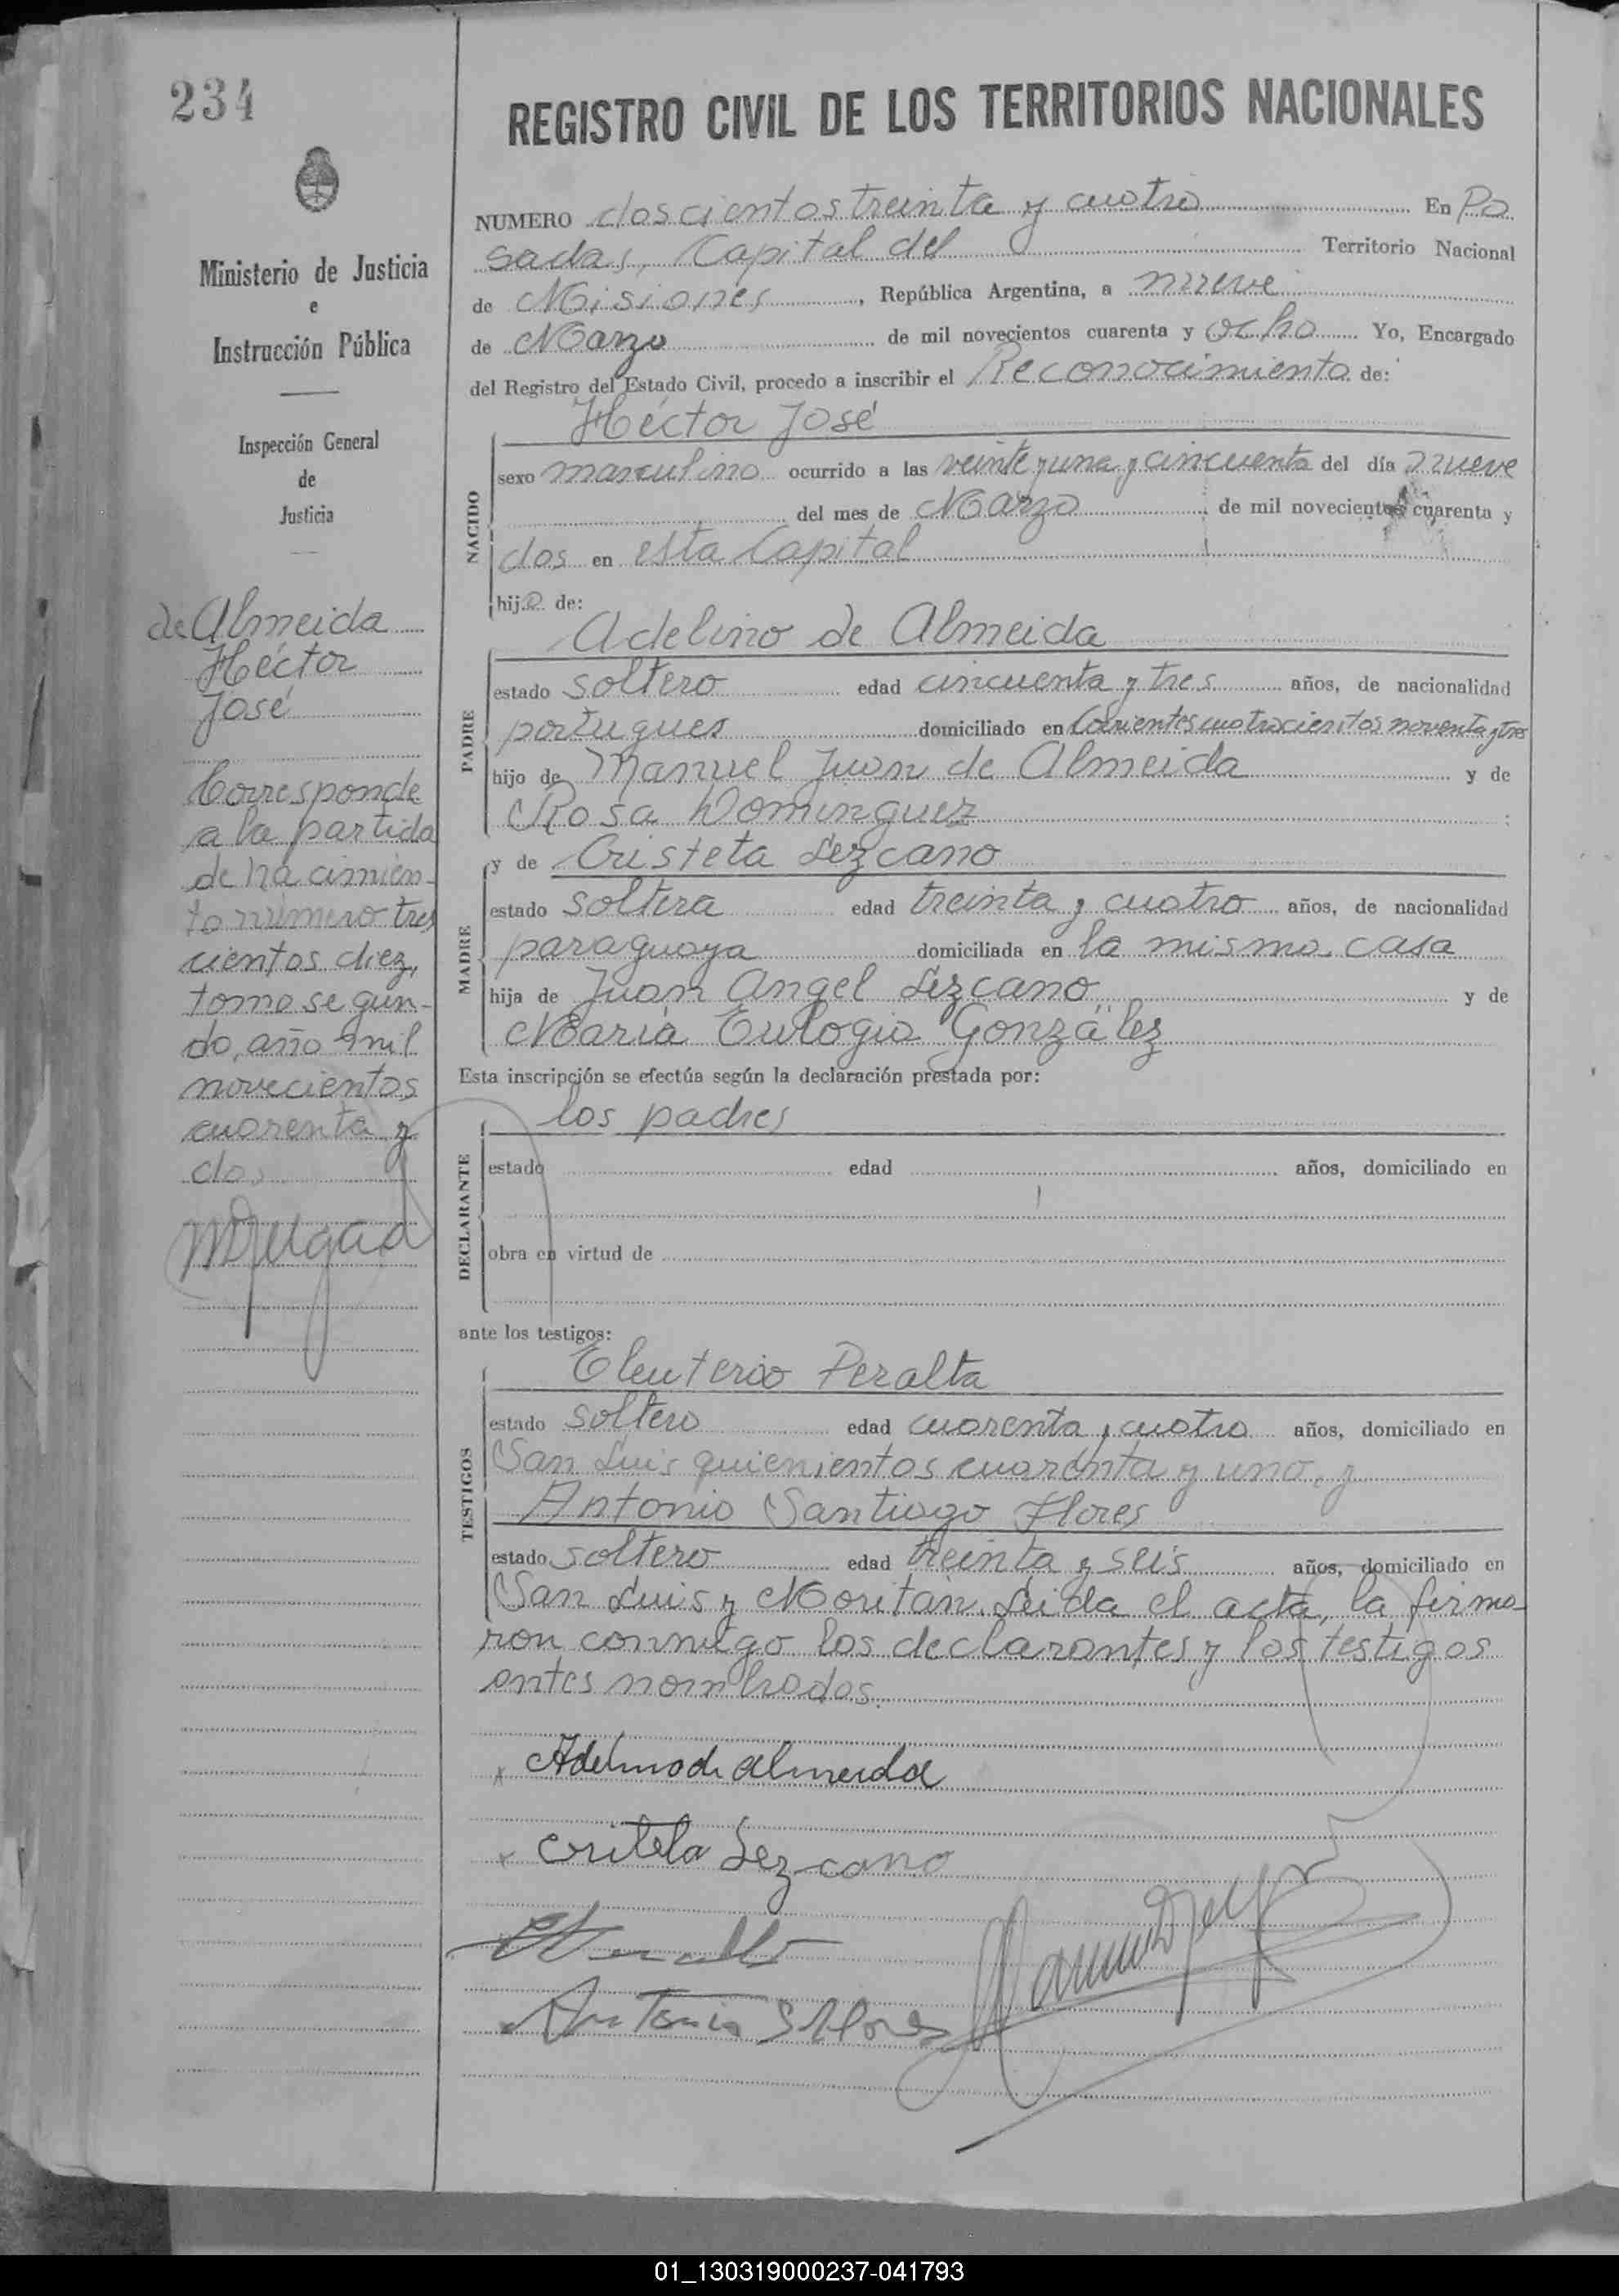 234
Ministerio de Justicia
e
Instrucción Pública
Inspección General
de
Justicia
de Almeida
Héctor
José
Corresponde
a la partida
de na cimien-
to número tres
cientos diez,
tomo segun-
do, año mil
novecientos
cuarenta y
dos
REGISTRO CIVIL DE LOS TERRITORIOS NACIONALES
NUMERO doscientos treinta y cuatro En Po
sadas, Capital del Territorio Nacional
de Misiones, República Argentina, a nueve
de Marzo de mil novecientos cuarenta y ocho Yo, Encargado
del Registro del Estado Civil, procedo a inscribir el Reconocimiento de:
Héctor José
NACIDO
sexo masculino ocurrido a las veinte y una y cincuenta del día nueve
del mes de Marzo de mil novecientos cuarenta y
dos en esta Capital
hijo de:
Adelino de Almeida
PADRE
estado soltero edad cincuenta y tres años, de nacionalidad
portugues domiciliado en Corrientes cuatrocientos noventa y tres
hijo de Manuel Juan de Almeida y de
Rosa Dominguez
y de Cristeta Lezcano
MADRE
estado soltera edad treinta y cuatro años, de nacionalidad
paraguaya domiciliada en la misma casa
hija de Juan Angel Lezcano y de
María Eulogia González
Esta inscripción se efectúa según la declaración prestada por:
los padres
DECLARANTE
estado edad años, domiciliado en
obra en virtud de
ante los testigos:
Eleuterio Peralta
TESTIGOS
estado soltero edad cuarenta y cuatro años, domiciliado en
San Luis quienientos cuarenta y uno, y
Antonio Santiago Flores
estado soltero edad treinta y seis años, domiciliado en
San Luis y Moritán. Leida el acta, la firma-
ron conmigo los declarantes y los testigos
antes nombrados.
x Adelino de almeida
x criteta Lezcano
Antonio S Flores
01_130319000237-041793